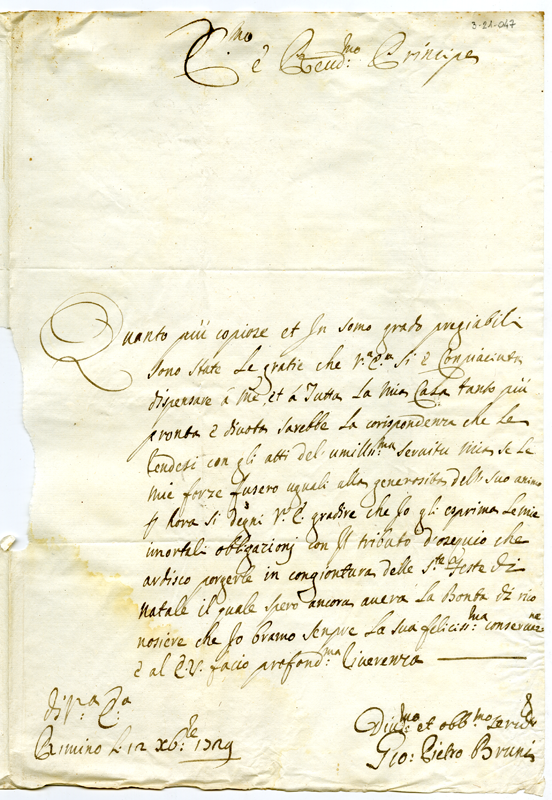 3-21-047
E.mo e Reud.mo Principe
Quanto più copiose et In somo grado pregiabili
sono state Le gratie che V.a E.a si è Conpiaciuta
dispensare à me, et à Tutta La mia Casa tanto più
pronta e diuota sarebbe La corispondenza che Le
rendesi con gli atti del umiliss.ma seruitù mia se Le
mie forze fusero uguali alla generosità dell suo animo
p hora si degni V. E. gradire che Io gli esprima Le mie
imortali obbligazionj con Il tributo d'osequio che
ardisco porgerle in congiontura delle S.te Feste di
Natale il quale spero ancora auerà La Bontà di rico
nosiere che Io bramo senpre La sua feliciss.ma conseruaz.ne
e al E.V. facio profond.ma riuerenza
di V.a E.a
Rimino Li 12 Xb.re 1729
Diu.mo et obb.mo Seru.
Gio: Pietro Bruni